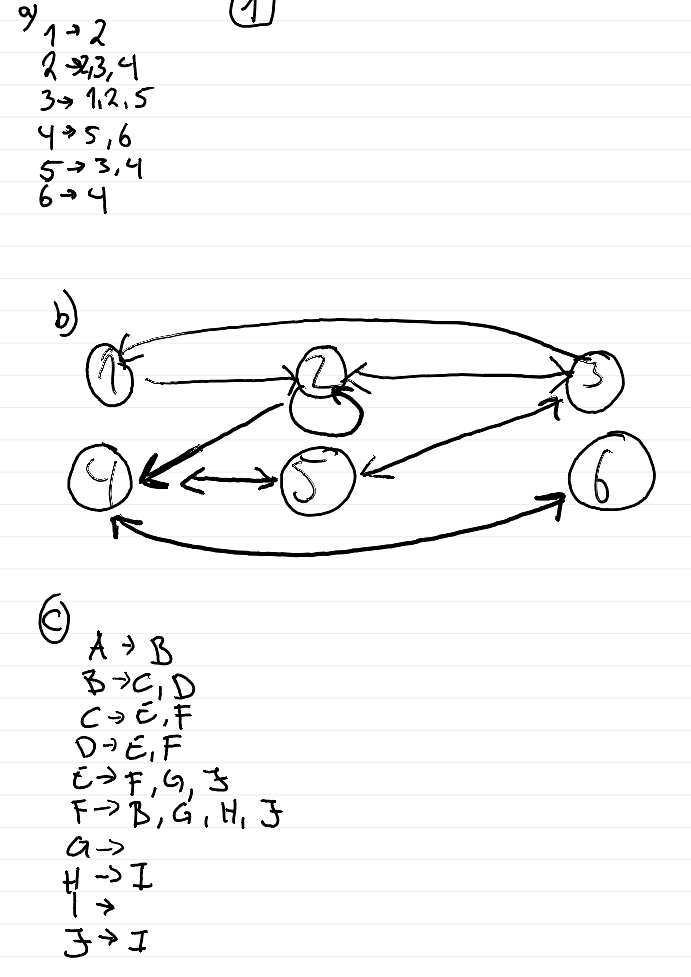 a)
1
1 → 2
2 → 2,3,4
3 → 1,2,5
4 → 5,6
5 → 3,4
6 → 4
b)
1 2 3
4 5 6
C
A → B
B → C, D
C → E, F
D → E, F
E → F, G, J
F → B, G, H, J
G →
H → I
I →
J → I